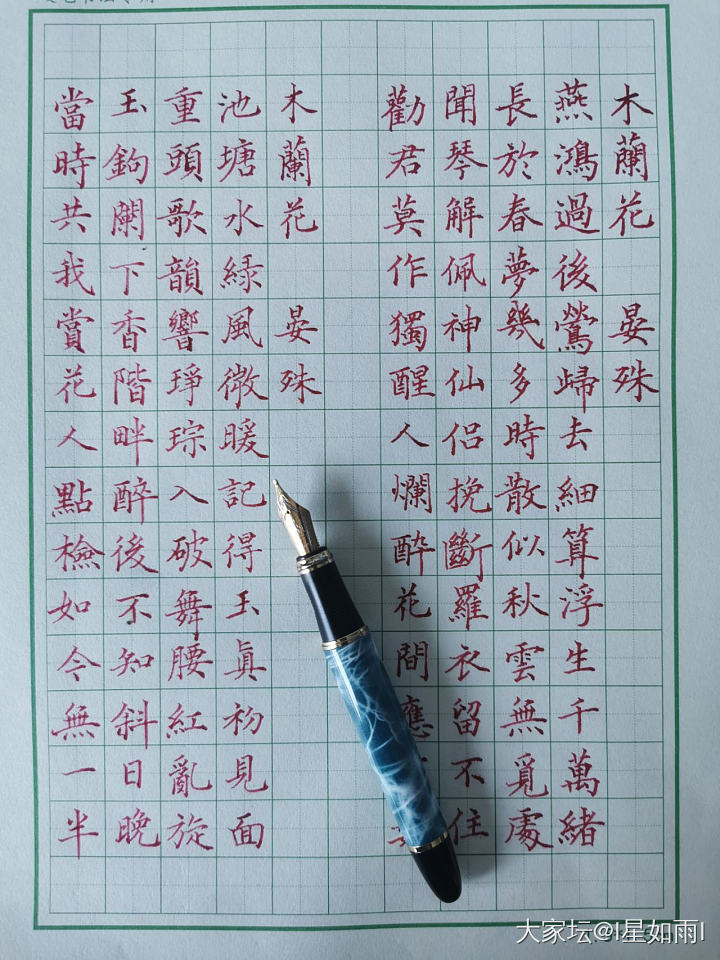 木蘭花 晏殊
燕鴻過後鶯歸去細筭浮生千萬緒
長於春夢幾多時散似秋雲無覓處
聞琴解佩神仙侶挽斷羅衣留不住
勸君莫作獨醒人爛醉花間應
木蘭花 晏殊
池塘水緑風微暖記得玉眞初見面
重頭歌韻響琤琮入破舞腰紅亂旋
玉鉤闌下香階畔醉後不知斜日晚
當時共我賞花人點檢如今無一半
大家坛@l星如雨l